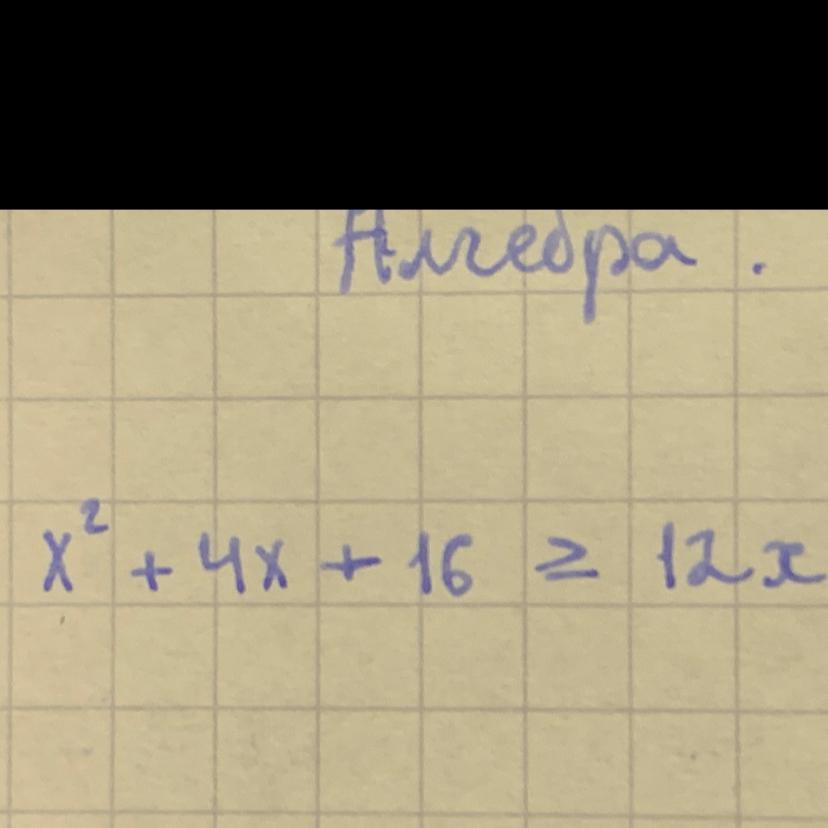 Алгебра.
x² + 4x + 16 ≥ 12x